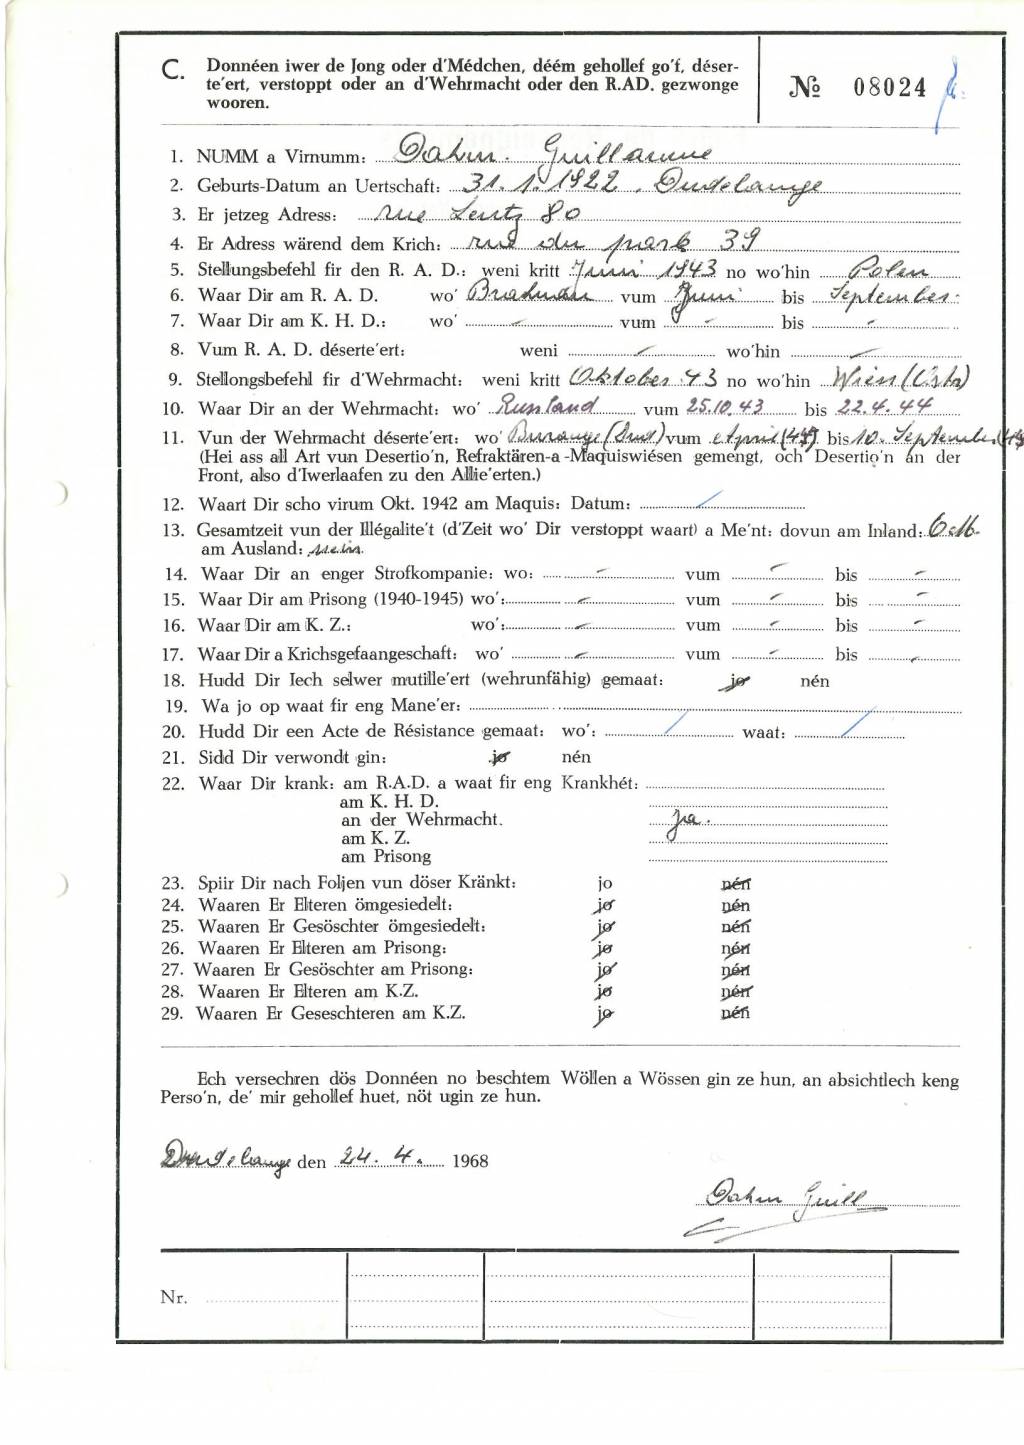 C. Donnéen iwer de Jong oder d'Médchen, déém gehollef go'f, déser-
te'ert, verstoppt oder an d'Wehrmacht oder den R.AD. gezwonge
wooren.
№ 08024
1. NUMM a Virnumm: Dahm. Guillaume
2. Geburts-Datum an Uertschaft: 31. 1. 1922. Dudelange
3. Er jetzeg Adress: rue Lentz 80
4. Er Adress wärend dem Krich: rue du park 39
5. Stellungsbefehl fir den R. A. D.: weni kritt Juni 1943 no wo'hin Polen
6. Waar Dir am R. A. D. wo' vum Juni bis September.
7. Waar Dir am K. H. D.: wo' - vum - bis -
8. Vum R. A. D. déserte'ert: weni - wo'hin -
9. Stellongsbefehl fir d'Wehrmacht: weni kritt Oktober 43 no wo'hin Wien (Östr)
10. Waar Dir an der Wehrmacht: wo' Rusland vum 25.10.43 bis 22.4.44
11. Vun der Wehrmacht déserte'ert: wo' Burange (Dud) vum April (44) bis 10. September (44)
(Hei ass all Art vun Desertio'n, Refraktären-a-Maquiswiésen gemengt, och Desertio'n an der
Front, also d'Iwerlaafen zu den Allie'erten.)
12. Waart Dir scho virum Okt. 1942 am Maquis: Datum: /
13. Gesamtzeit vun der Illégalite't (d'Zeit wo' Dir verstoppt waart) a Me'nt: dovun am Inland: 6 M.
am Ausland: nein.
14. Waar Dir an enger Strofkompanie: wo: - vum - bis -
15. Waar Dir am Prisong (1940-1945) wo': - vum - bis -
16. Waar Dir am K. Z.: wo': - vum - bis -
17. Waar Dir a Krichsgefaangeschaft: wo' - vum - bis -
18. Hudd Dir Iech selwer mutille'ert (wehrunfähig) gemaat: jo nén
19. Wa jo op waat fir eng Mane'er:
20. Hudd Dir een Acte de Résistance gemaat: wo': / waat: /
21. Sidd Dir verwondt gin: jo nén
22. Waar Dir krank: am R.A.D. a waat fir eng Krankhét:
am K. H. D.
an der Wehrmacht. ja.
am K. Z.
am Prisong
23. Spiir Dir nach Foljen vun döser Kränkt: jo nén
24. Waaren Er Elteren ömgesiedelt: jo nén
25. Waaren Er Gesöschter ömgesiedelt: jo nén
26. Waaren Er Elteren am Prisong: jo nén
27. Waaren Er Gesöschter am Prisong: jo nén
28. Waaren Er Elteren am K.Z. jo nén
29. Waaren Er Geseschteren am K.Z. jo nén
Ech versechren dös Donnéen no beschtem Wöllen a Wössen gin ze hun, an absichtlech keng
Perso'n, de' mir gehollef huet, nöt ugin ze hun.
Dudelange den 24. 4. 1968
Dahm Guill
Nr.